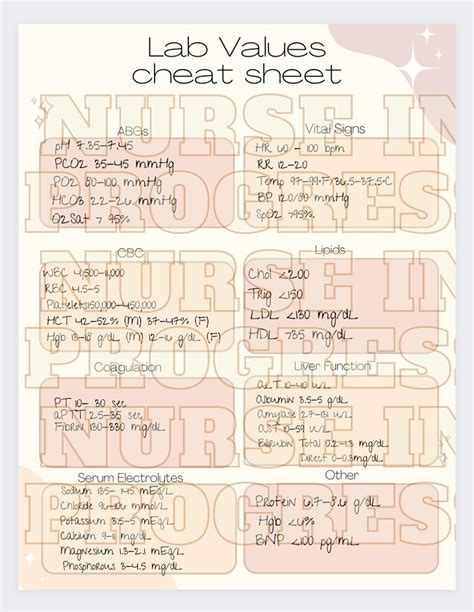 Lab Values
cheat sheet
NURSE IN
PROGRESS
NURSE IN
PROGRESS
NURSE IN
PROGRESS
ABGs
pH 7.35-7.45
PCO2 35-45 mmHg
PO2 80-100 mmHg
HCO3 22-26 mmHg
O2Sat > 95%
Vital Signs
HR 60 - 100 bpm
RR 12-20
Temp 97-99°F/36.5-37.5°C
BP 120/80 mmHg
SpO2 >95%
CBC
WBC 4,500-11,000
RBC 4.5-5
Platelets 150,000-450,000
HCT 42-52% (M) 37-47% (F)
Hgb g/dL (M) g/dL (F)
Lipids
Chol <200
Trig <150
LDL <130 mg/dL
HDL >35 mg/dL
Coagulation
PT 10- 30 sec
aPTT 25-35 sec
Fibrin mg/dL
Liver Function
ALT 10-40 W/L
Albumin 3.5-5 g/dL
Amylase W/L
AST 10-59 W/L
Bilirubin Total mg/dL
Direct mg/dL
Serum Electrolytes
Sodium 135- 145 mEq/L
Chloride 96-106 mmol/L
Potassium 3.5-5 mmol/L
Calcium 9-11 mg/dL
Magnesium mEq/L
Phosphorous 3-4.5 mg/dL
Other
Protein g/dL
Hgb <6%
BNP <100 pg/mL